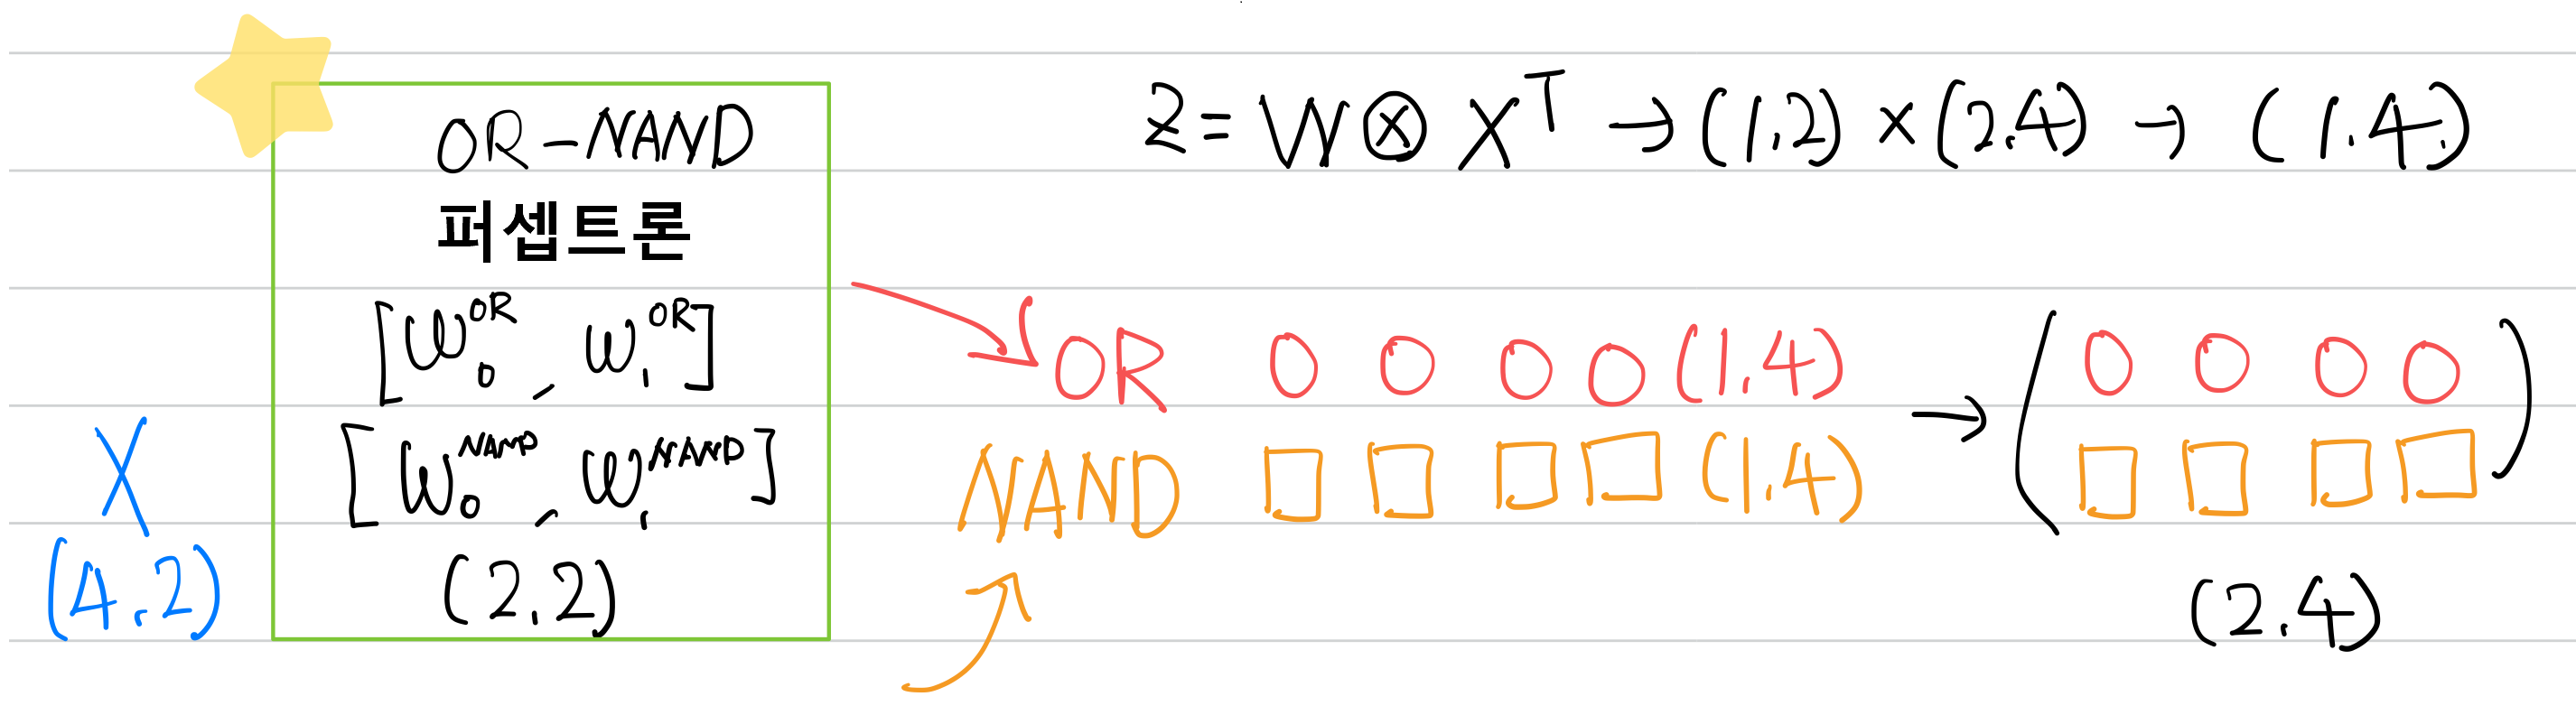 OR-NAND
퍼셉트론
[W₀ᴼᴿ, W₁ᴼᴿ]
[W₀ᴺᴬᴺᴰ, W₁ᴺᴬᴺᴰ]
(2.2)
X
(4.2)
Z = W⊗Xᵀ → (1.2) × (2.4) → (1.4.)
OR 0 0 0 0 (1.4) → (0 0 0 0
NAND □ □ □ □ (1.4) □ □ □ □)
(2.4)